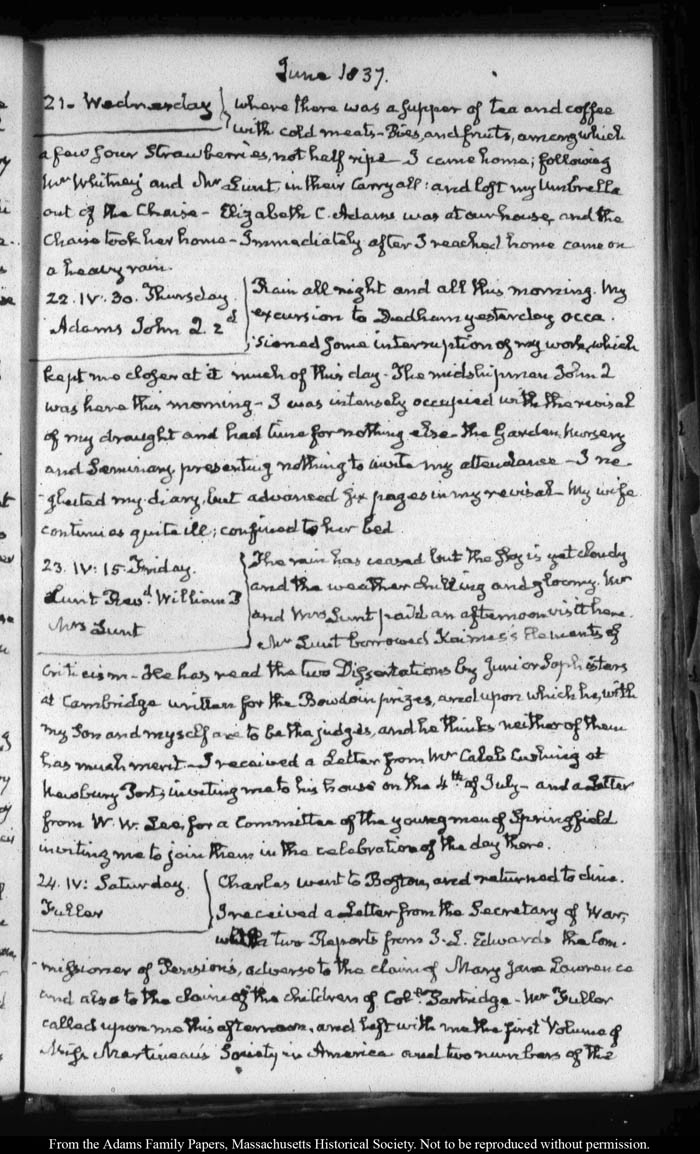 June 1837.
21. Wednesday
where there was a supper of tea and coffee
with cold meats, Pies, and fruits, among which
a few sour Strawberries, not half ripe. I came home; following
Mr. Whitney and Mr. Lunt, in their Carryall: and left my Umbrella
out of the Chaise - Elizabeth C. Adams was at our house, and the
Chaise took her home - Immediately after I reached home came on
a heavy rain.
22. IV: 30. Thursday.
Adams John Q. 2d
Rain all night and all this morning. My
excursion to Dedham yesterday occa-
-sioned some interruption of my work, which
kept me closer at it much of this day. The midshipman John Q
was here this morning - I was intensely occupied with the revisal
of my draught and had time for nothing else - the Garden, Nursery
and Seminary, presenting nothing to invite my attendance - I ne-
-glected my diary, but advanced six pages in my revisal - My wife
continues quite ill; confined to her bed.
23. IV: 15. Friday.
Lunt Revd. William P
Mrs Lunt
The rain has ceased but the sky is yet cloudy
and the weather chilling and gloomy. Mr
and Mrs Lunt paid an afternoon visit here.
Mr Lunt borrowed Kaimes's Elements of
Criticism - He has read the two Dissertations by Junior Sophisters
at Cambridge written for the Bowdoin prizes, and upon which he, with
my Son and myself are to be the judges, and he thinks neither of them
has much merit - I received a Letter from Mr Caleb Cushing at
Newbury Port, inviting me to his house on the 4th of July - and a Letter
from W. W. Lee, for a Committee of the young men of Springfield
inviting me to join them in the celebration of the day there.
24. IV: Saturday.
Fuller
Charles went to Boston, and returned to dine.
I received a Letter from the Secretary of War,
with two Reports from J. L. Edwards the Com-
-missioner of Pensions, adverse to the claim of Mary Jane Lawrence
and also to the claim of the children of Coll. Partridge - Mr Fuller
called upon me this afternoon, and left with me the first Volume of
Miss Martineau's Society in America and two numbers of the
From the Adams Family Papers, Massachusetts Historical Society. Not to be reproduced without permission.